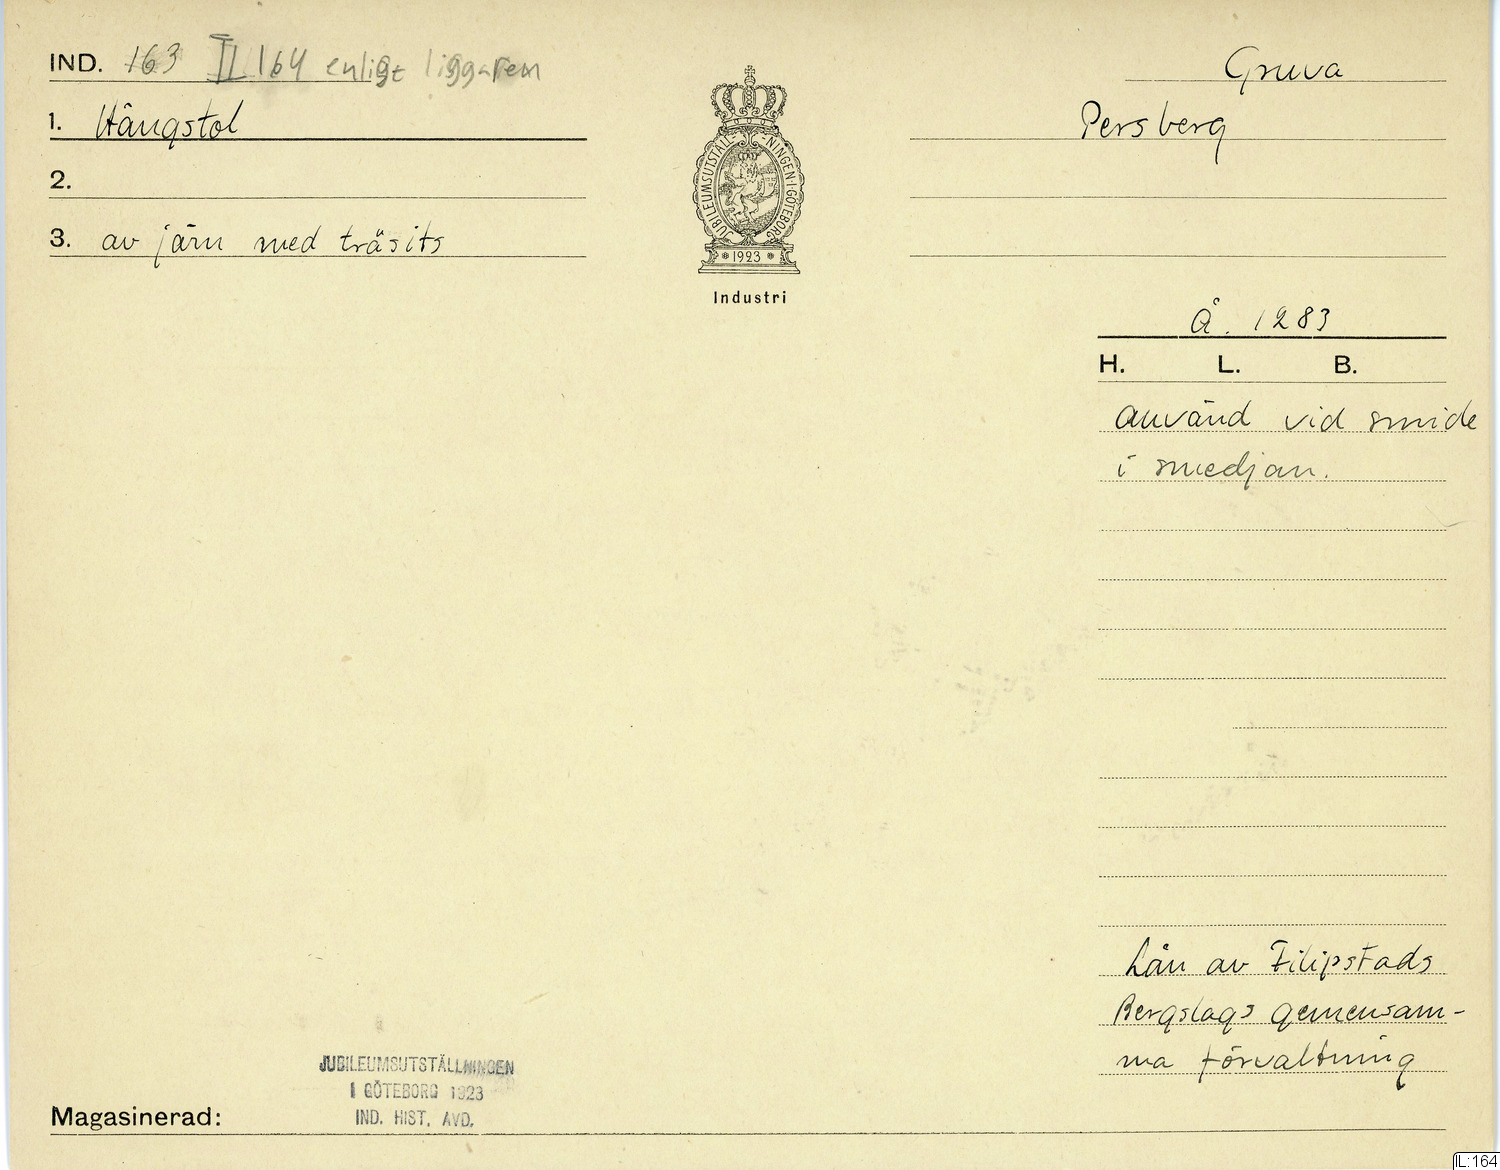 IND. 163 IL 164 enligt liggaren
Gruva
1. Hängstol
Persberg
2.
3. av järn med träsits
JUBILEUMSUTSTÄLLNINGEN I GÖTEBORG
1923
Industri
Å. 1283
H. L. B.
använd vid smide
i smedjan.
Lån av Filipstads
Bergslags gemensam-
ma förvaltning
JUBILEUMSUTSTÄLLNINGEN
I GÖTEBORG 1923
IND. HIST. AVD.
Magasinerad:
IL:164